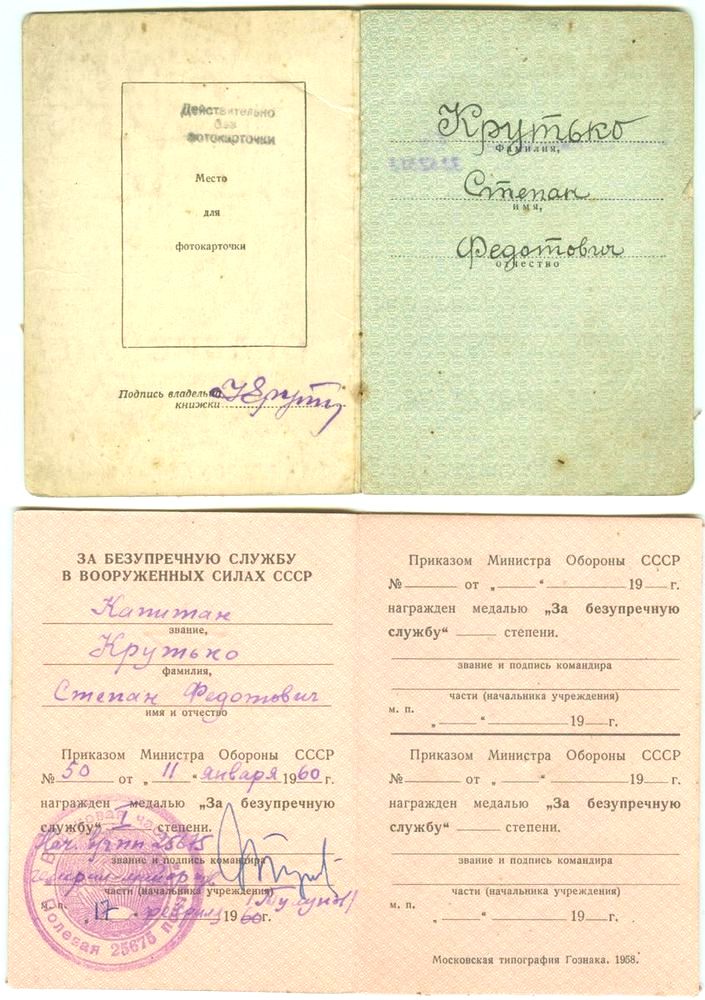 Действительно
без
фотокарточки
Место
для
фотокарточки
Подпись владельца
книжки
Крутько
Фамилия,
Степан
имя,
Федотович
отчество
ЗА БЕЗУПРЕЧНУЮ СЛУЖБУ
В ВООРУЖЕННЫХ СИЛАХ СССР
Капитан
звание,
Крутько
фамилия,
Степан Федотович
имя и отчество
Приказом Министра Обороны СССР
№ 50 от „ 11 “ января 1960 г.
награжден медалью „За безупречную
службу“ I степени.
Нач. 25675
звание и подпись командира
генерал-майор
части (начальника учреждения)
м. п. „ 17 “ февраля 1960 г.
Полевая 25675
Приказом Министра Обороны СССР
№ от „ “ 19 г.
награжден медалью „За безупречную
службу“ степени.
звание и подпись командира
части (начальника учреждения)
м. п.
„ “ 19 г.
Приказом Министра Обороны СССР
№ от „ “ 19 г.
награжден медалью „За безупречную
службу“ степени.
звание и подпись командира
части (начальника учреждения)
м. п.
„ “ 19 г.
Московская типография Гознака. 1958.